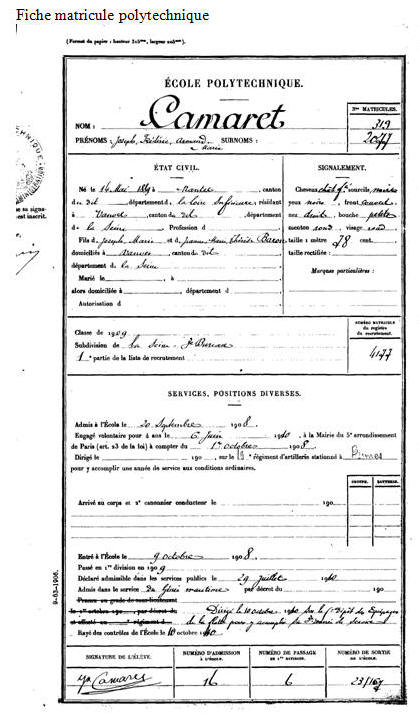 Fiche matricule polytechnique
(Format du papier : hauteur 315mm, largeur 205mm.)
ÉCOLE POLYTECHNIQUE.
Nos MATRICULES.
NOM : Camaret 319
PRÉNOMS : Joseph, Frédéric, Armand Marie SURNOMS : 2077
ÉTAT CIVIL.
Né le 14 Mai 1889 à Nantes, canton
du dit, département de la Loire Inférieure, résidant
à Vanves, canton du dit, département
de la Seine, Profession d
Fils de Joseph, Marie et de Jeanne, Marie, Thérèse Baron
domiciliés à Vanves, canton du dit
département de la Seine
Marié le , à
alors domiciliée à département d
Autorisation d
SIGNALEMENT.
Cheveux chât. fé sourcils noirs
yeux noirs, front couvert
nez droit, bouche petite
menton rond, visage rond
taille 1 mètre 78 cent.
taille rectifiée :
Marques particulières :
Classe de 1909
Subdivision de la Seine
1e partie de la liste de recrutement
NUMÉRO MATRICULE
du registre
du recrutement.
4177
SERVICES, POSITIONS DIVERSES.
Admis à l'École le 20 Septembre 1908
Engagé volontaire pour 4 ans le 6 Juin 1910, à la Mairie du 5e arrondissement
de Paris (art. 23 de la loi) à compter du 1er octobre 1908
Dirigé le 190 , sur le régiment d'artillerie stationné à
pour y accomplir une année de service aux conditions ordinaires.
GROUPE. BATTERIE.
Arrivé au corps et 2e canonnier conducteur le 190
Entré à l'École le 9 octobre 1908.
Passé en 1re division en 1909
Déclaré admissible dans les services publics le 29 juillet 1910
Admis dans le service du Génie maritime par décret du 190
Dirigé le 10 octobre 1910 sur le 1er Dépôt des Équipages
de la flotte pour y accomplir sa 2e année de service
Rayé des contrôles de l'École le 10 octobre 1910
9-63-1906.
SIGNATURE DE L'ÉLÈVE.
NUMÉRO D'ADMISSION
À L'ÉCOLE.
NUMÉRO DE PASSAGE
EN 1re DIVISION.
NUMÉRO DE SORTIE
DE L'ÉCOLE.
Camaret 16 6 23/167